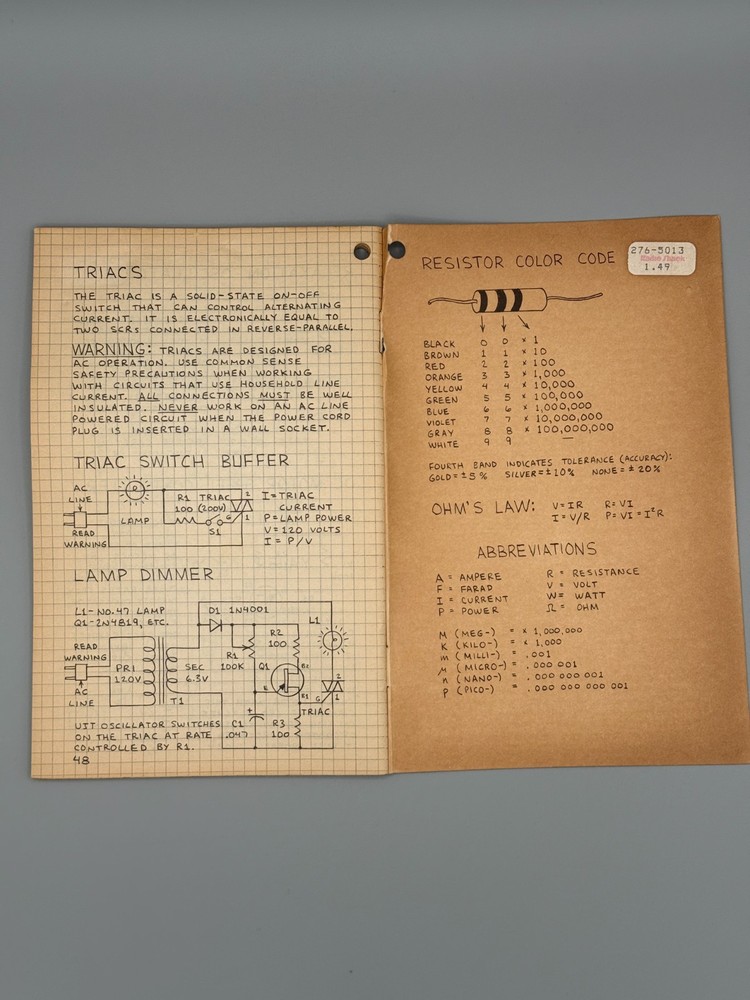 TRIACS
THE TRIAC IS A SOLID-STATE ON-OFF
SWITCH THAT CAN CONTROL ALTERNATING
CURRENT. IT IS ELECTRONICALLY EQUAL TO
TWO SCRs CONNECTED IN REVERSE-PARALLEL.
WARNING: TRIACS ARE DESIGNED FOR
AC OPERATION. USE COMMON SENSE
SAFETY PRECAUTIONS WHEN WORKING
WITH CIRCUITS THAT USE HOUSEHOLD LINE
CURRENT. ALL CONNECTIONS MUST BE WELL
INSULATED. NEVER WORK ON AN AC LINE
POWERED CIRCUIT WHEN THE POWER CORD
PLUG IS INSERTED IN A WALL SOCKET.
TRIAC SWITCH BUFFER
AC
LINE
READ
WARNING
LAMP
R1
100
TRIAC
(200V)
S1
G
2
1
I = TRIAC
CURRENT
P = LAMP POWER
V = 120 VOLTS
I = P/V
LAMP DIMMER
L1 - NO. 47 LAMP
Q1 - 2N4819, ETC.
READ
WARNING
AC
LINE
PRI
120V
SEC
6.3V
T1
D1 1N4001
R1
100K
R2
100
Q1
E
B2
B1
L1
2
1
G
TRIAC
+
C1
.047
R3
100
UJT OSCILLATOR SWITCHES
ON THE TRIAC AT RATE
CONTROLLED BY R1.
48
RESISTOR COLOR CODE
276-5013
Radio Shack
1.49
BLACK 0 0 × 1
BROWN 1 1 × 10
RED 2 2 × 100
ORANGE 3 3 × 1,000
YELLOW 4 4 × 10,000
GREEN 5 5 × 100,000
BLUE 6 6 × 1,000,000
VIOLET 7 7 × 10,000,000
GRAY 8 8 × 100,000,000
WHITE 9 9 —
FOURTH BAND INDICATES TOLERANCE (ACCURACY):
GOLD = ± 5 % SILVER = ± 10 % NONE = ± 20 %
OHM'S LAW: V = IR R = VI
I = V/R P = VI = I²R
ABBREVIATIONS
A = AMPERE R = RESISTANCE
F = FARAD V = VOLT
I = CURRENT W = WATT
P = POWER Ω = OHM
M (MEG-) = × 1,000,000
K (KILO-) = × 1,000
m (MILLI-) = .001
μ (MICRO-) = .000 001
n (NANO-) = .000 000 001
p (PICO-) = .000 000 000 001